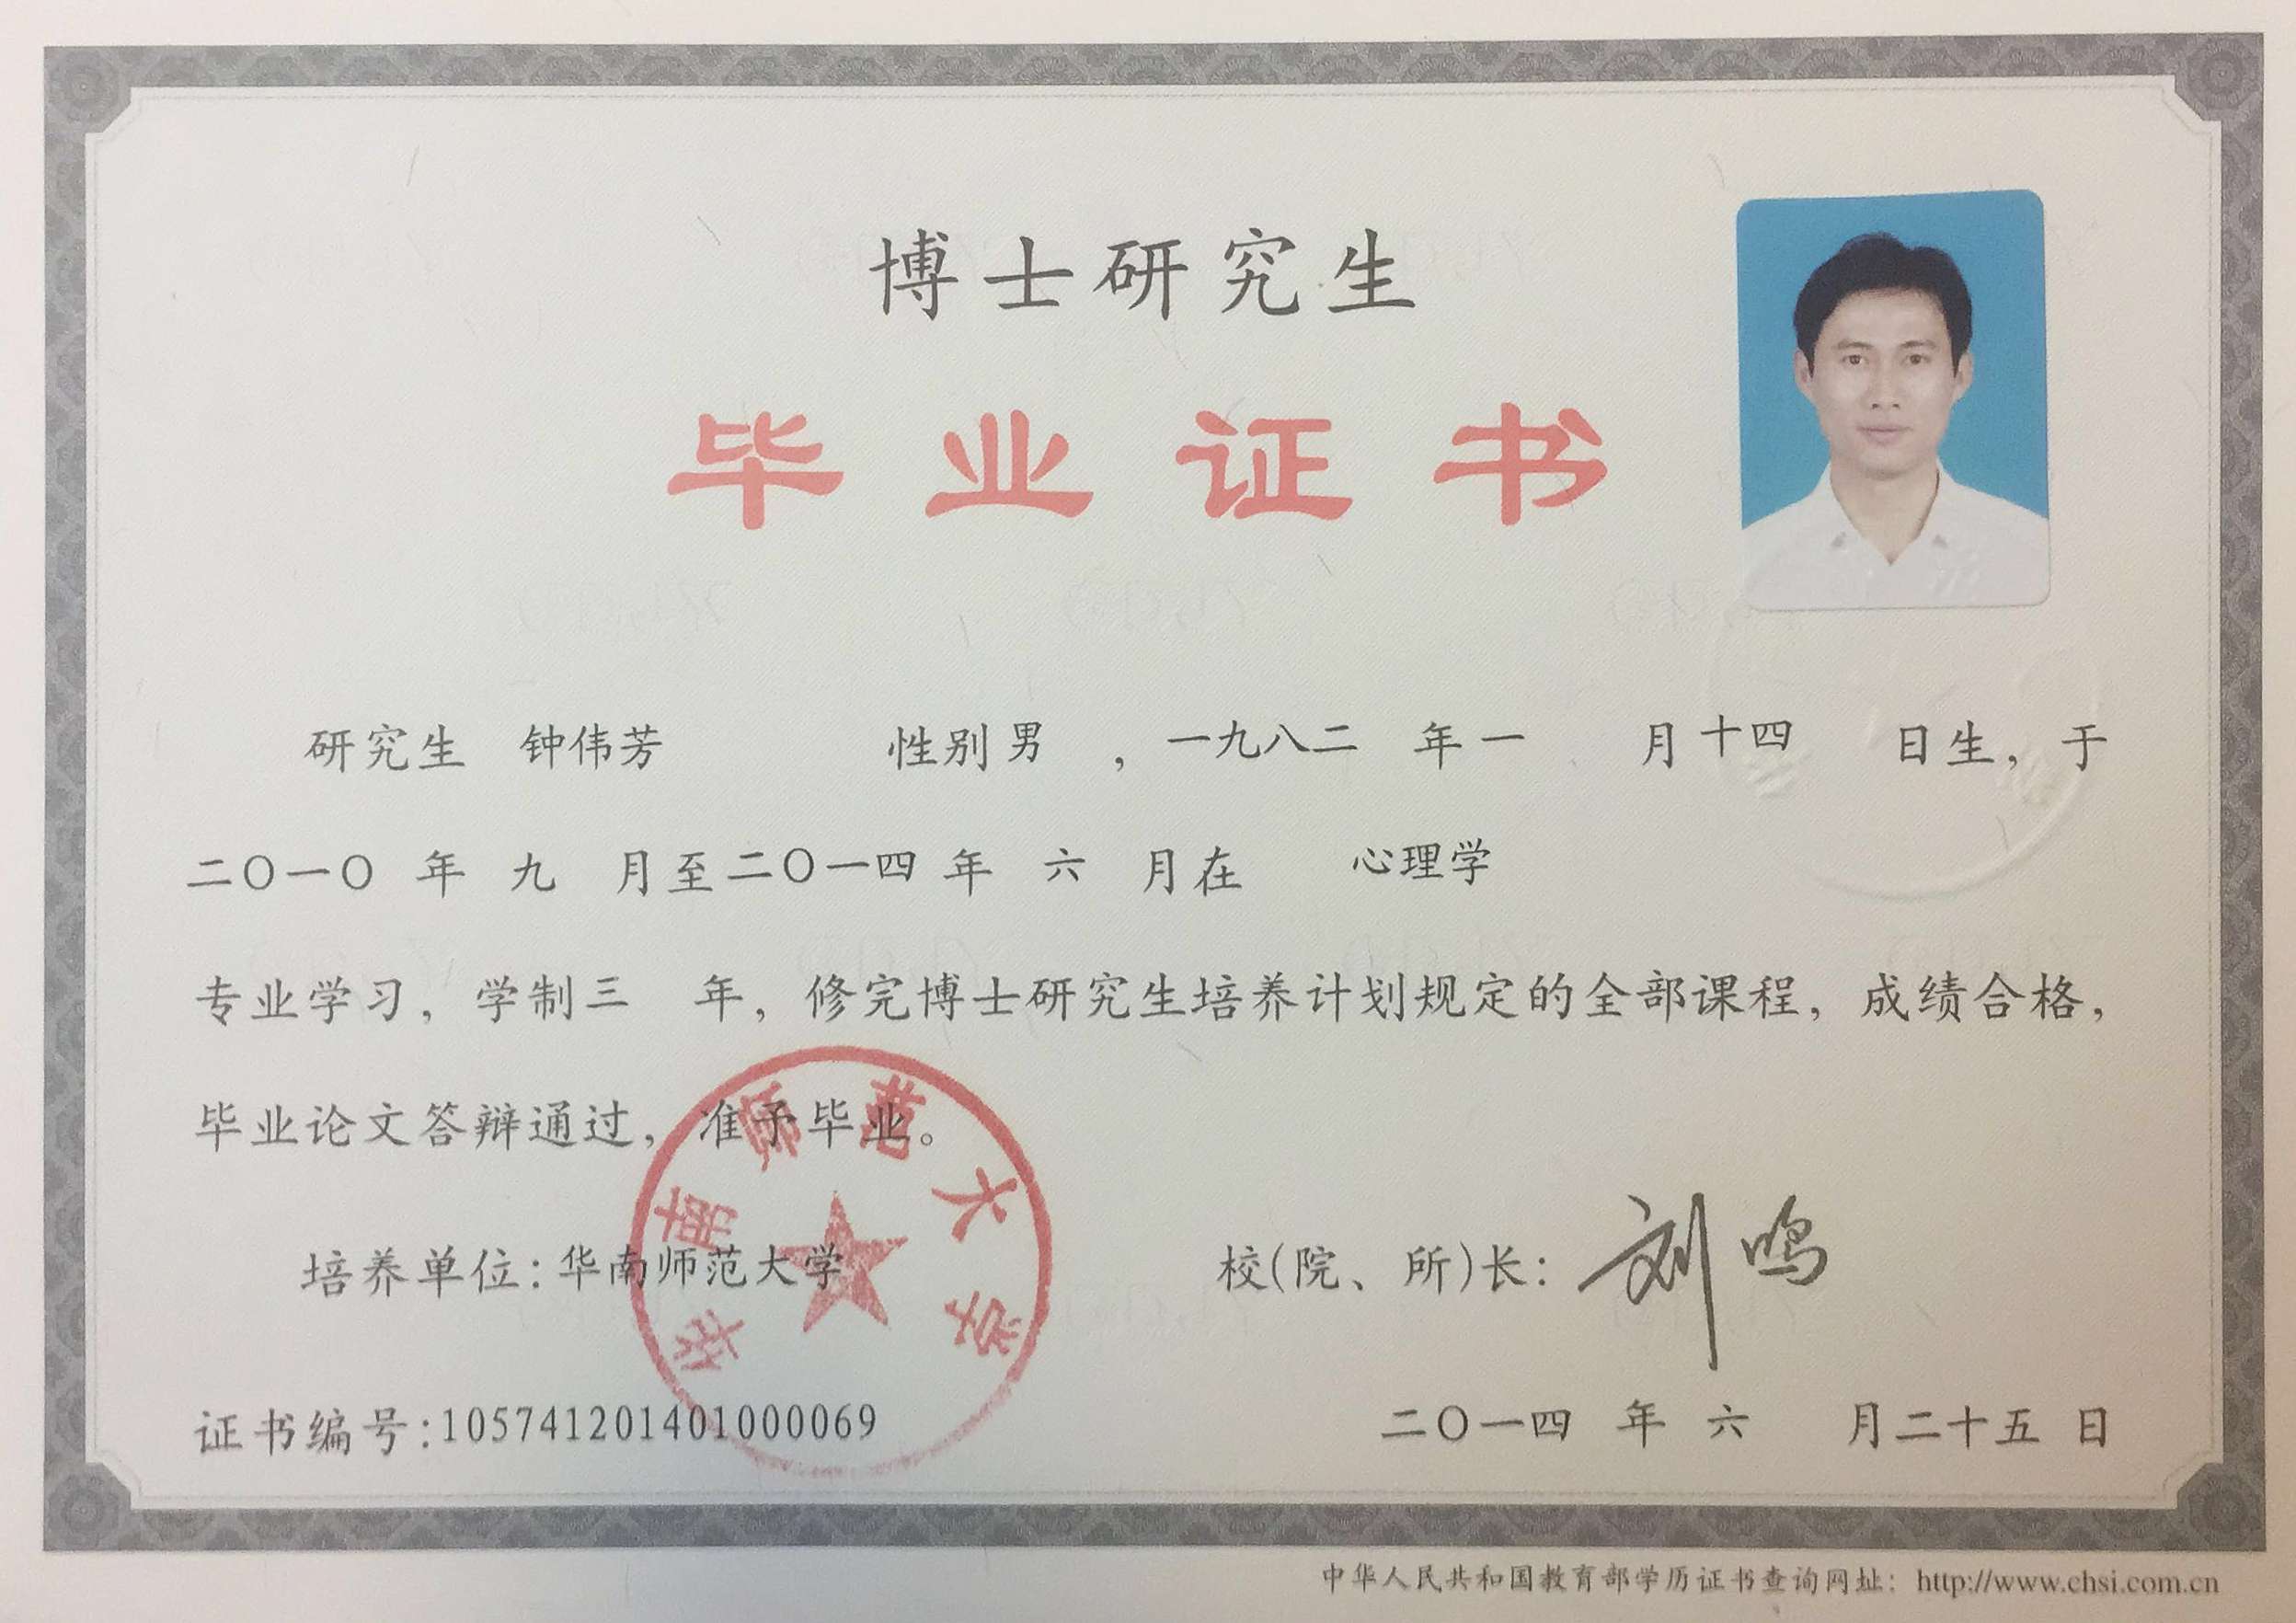 博士研究生
毕业证书
研究生 钟伟芳 性别 男 ，一九八二 年 一 月 十四 日生，于
二〇一〇 年 九 月至 二〇一四 年 六 月在 心理学
专业学习，学制 三 年，修完博士研究生培养计划规定的全部课程，成绩合格，
毕业论文答辩通过，准予毕业。
华南师范大学
培养单位：华南师范大学 校(院、所)长：刘鸣
证书编号：105741201401000069 二〇一四 年 六 月 二十五 日
中华人民共和国教育部学历证书查询网址：http://www.chsi.com.cn